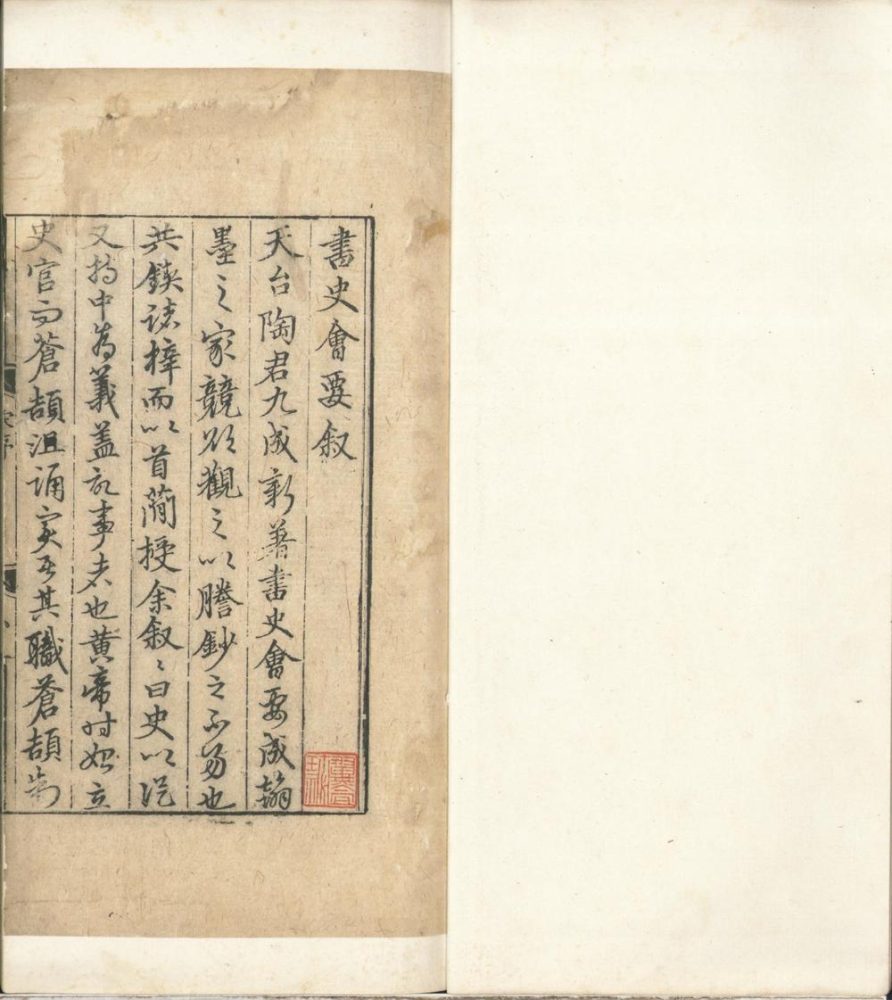 書史會要叙
天台陶君九成新著書史會要成翰
墨之家競欲觀之以謄鈔之不易也
共鋟諸梓而以首簡授余叙〻曰史以從
又持中為義蓋記事者也黄帝時始立
史官而蒼頡沮誦寔居其職蒼頡制